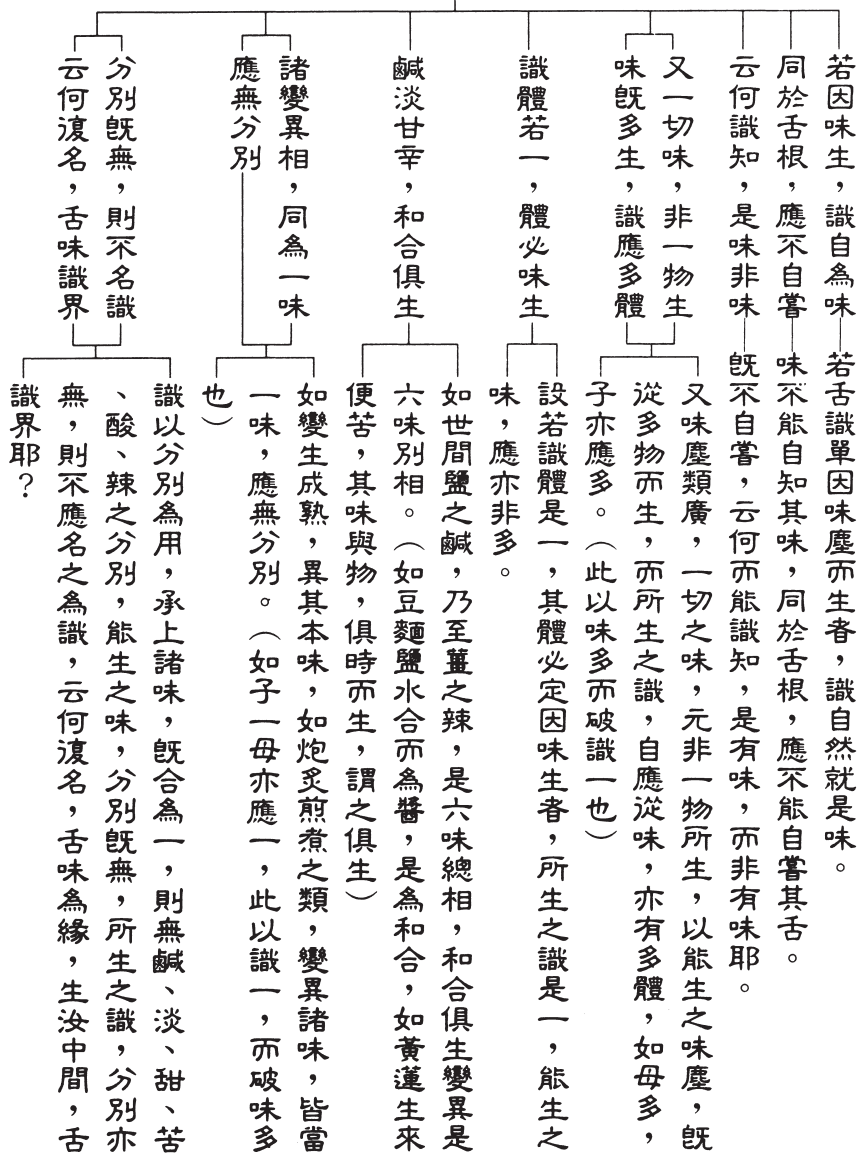 若因味生，識自為味
同於舌根，應不自嘗
云何識知，是味非味
又一切味，非一物生
味旣多生，識應多體
識體若一，體必味生
鹹淡甘辛，和合俱生
諸變異相，同為一味
應無分別
分別旣無，則不名識
云何復名，舌味識界
若舌識單因味塵而生者，識自然就是味。
味不能自知其味，同於舌根，應不能自嘗其舌。
旣不自嘗，云何而能識知，是有味，而非有味耶。
又味塵類廣，一切之味，元非一物所生，以能生之味塵，旣
從多物而生，而所生之識，自應從味，亦有多體，如母多，
子亦應多。（此以味多而破識一也）
設若識體是一，其體必定因味生者，所生之識是一，能生之
味，應亦非多。
如世間鹽之鹹，乃至薑之辣，是六味總相，和合俱生變異是
六味別相。（如豆麵鹽水合而為醬，是為和合，如黃蓮生來
便苦，其味與物，俱時而生，謂之俱生）
如變生成熟，異其本味，如炮炙煎煮之類，變異諸味，皆當
一味，應無分別。（如子一母亦應一，此以識一，而破味多
也）
識以分別為用，承上諸味，旣合為一，則無鹹、淡、甜、苦
、酸、辣之分別，能生之味，分別旣無，所生之識，分別亦
無，則不應名之為識，云何復名，舌味為緣，生汝中間，舌
識界耶？